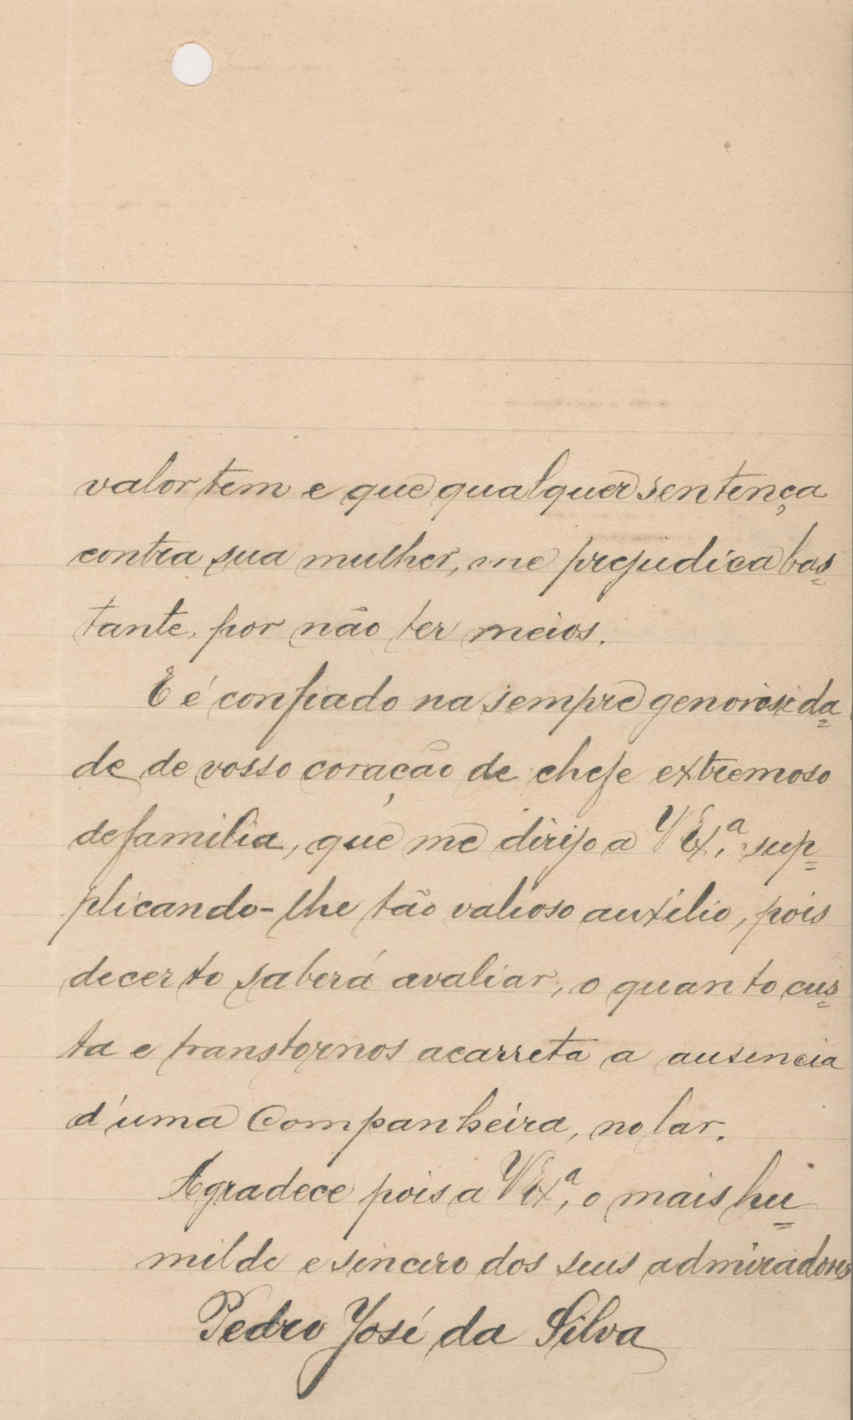 valor tem e que qualquer sentença
contra sua mulher, me prejudica bas=
tante, por não ter meios.
E é confiado na sempre genorosida=
de de vosso coração de chefe extremoso
de familia, que me dirijo a V Ex.ª sup=
plicando-lhe tão valioso auxilio, pois
decerto saberá avaliar, o quanto cus=
ta e transtornos acarreta a ausencia
d'uma Companheira, no lar.
Agradece pois a V Ex.ª, o mais hu=
milde e sincero dos seus admiradores
Pedro José da Silva